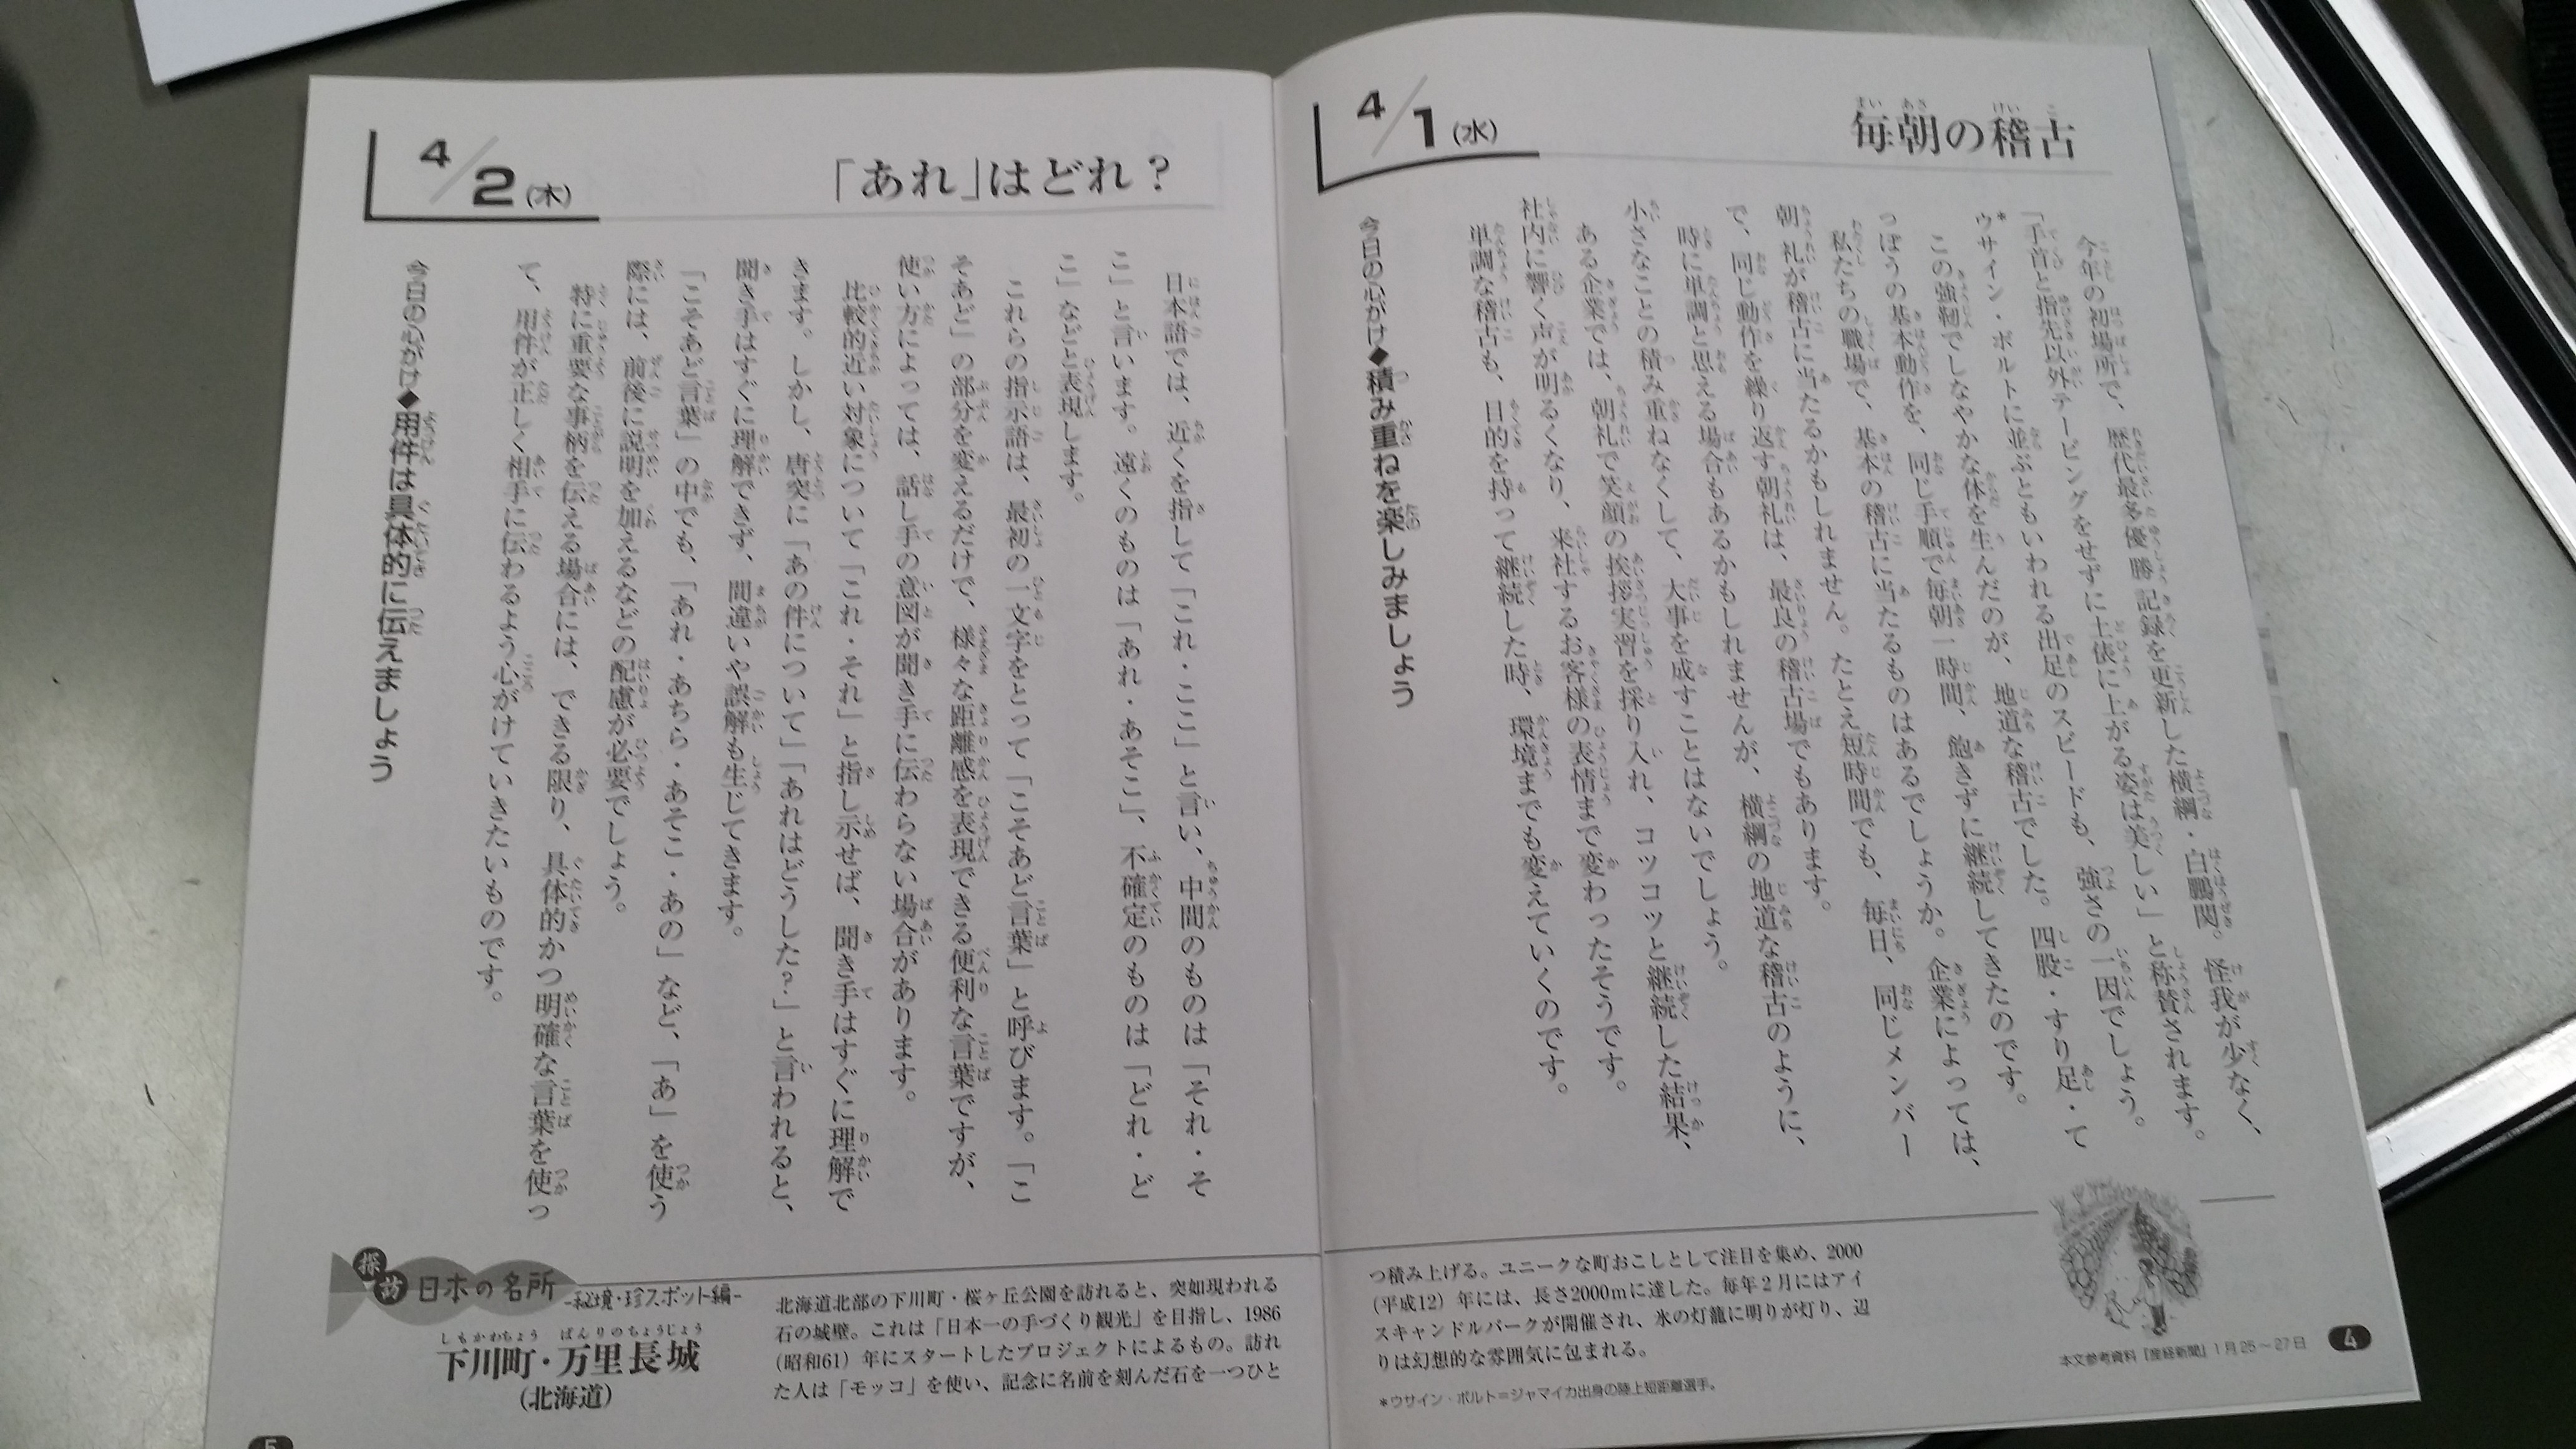 毎朝の稽古
4/1(水)
今年の初場所で、歴代最多優勝記録を更新した横綱・白鵬関。怪我が少なく、
「手首と指先以外テーピングをせずに土俵に上がる姿は美しい」と称賛されます。
ウサイン・ボルトに並ぶともいわれる出足のスピードも、強さの一因でしょう。
この強靭でしなやかな体を生んだのが、地道な稽古でした。四股・すり足・て
っぽうの基本動作を、同じ手順で毎朝一時間、飽きずに継続してきたのです。
私たちの職場で、基本の稽古に当たるものはあるでしょうか。企業によっては、
朝礼が稽古に当たるかもしれません。たとえ短時間でも、毎日、同じメンバー
で、同じ動作を繰り返す朝礼は、最良の稽古場でもあります。
時に単調と思える場合もあるかもしれませんが、横綱の地道な稽古のように、
小さなことの積み重ねなくして、大事を成すことはないでしょう。
ある企業では、朝礼で笑顔の挨拶実習を採り入れ、コツコツと継続した結果、
社内に響く声が明るくなり、来社するお客様の表情まで変わったそうです。
単調な稽古も、目的を持って継続した時、環境までも変えていくのです。
今日の心がけ◆積み重ねを楽しみましょう
「あれ」はどれ？
4/2(木)
日本語では、近くを指して「これ・ここ」と言い、中間のものは「それ・そ
こ」と言います。遠くのものは「あれ・あそこ」、不確定のものは「どれ・ど
こ」などと表現します。
これらの指示語は、最初の一文字をとって「こそあど言葉」と呼びます。「こ
そあど」の部分を変えるだけで、様々な距離感を表現できる便利な言葉ですが、
使い方によっては、話し手の意図が聞き手に伝わらない場合があります。
比較的近い対象について「これ・それ」と指し示せば、聞き手はすぐに理解で
きます。しかし、唐突に「あの件について」「あれはどうした？」と言われると、
聞き手はすぐに理解できず、間違いや誤解も生じてきます。
「こそあど言葉」の中でも、「あれ・あちら・あそこ・あの」など、「あ」を使う
際には、前後に説明を加えるなどの配慮が必要でしょう。
特に重要な事柄を伝える場合には、できる限り、具体的かつ明確な言葉を使っ
て、用件が正しく相手に伝わるよう心がけていきたいものです。
今日の心がけ◆用件は具体的に伝えましょう
探訪 日本の名所
-秘境・珍スポット編-
下川町・万里長城
(北海道)
北海道北部の下川町・桜ヶ丘公園を訪れると、突如現われる
石の城壁。これは「日本一の手づくり観光」を目指し、1986
(昭和61) 年にスタートしたプロジェクトによるもの。訪れ
た人は「モッコ」を使い、記念に名前を刻んだ石を一つひと
つ積み上げる。ユニークな町おこしとして注目を集め、2000
(平成12) 年には、長さ2000mに達した。毎年2月にはアイ
スキャンドルパークが開催され、氷の灯籠に明りが灯り、辺
りは幻想的な雰囲気に包まれる。
*ウサイン・ボルト＝ジャマイカ出身の陸上短距離選手。
本文参考資料『産経新聞』1月25～27日
4
5